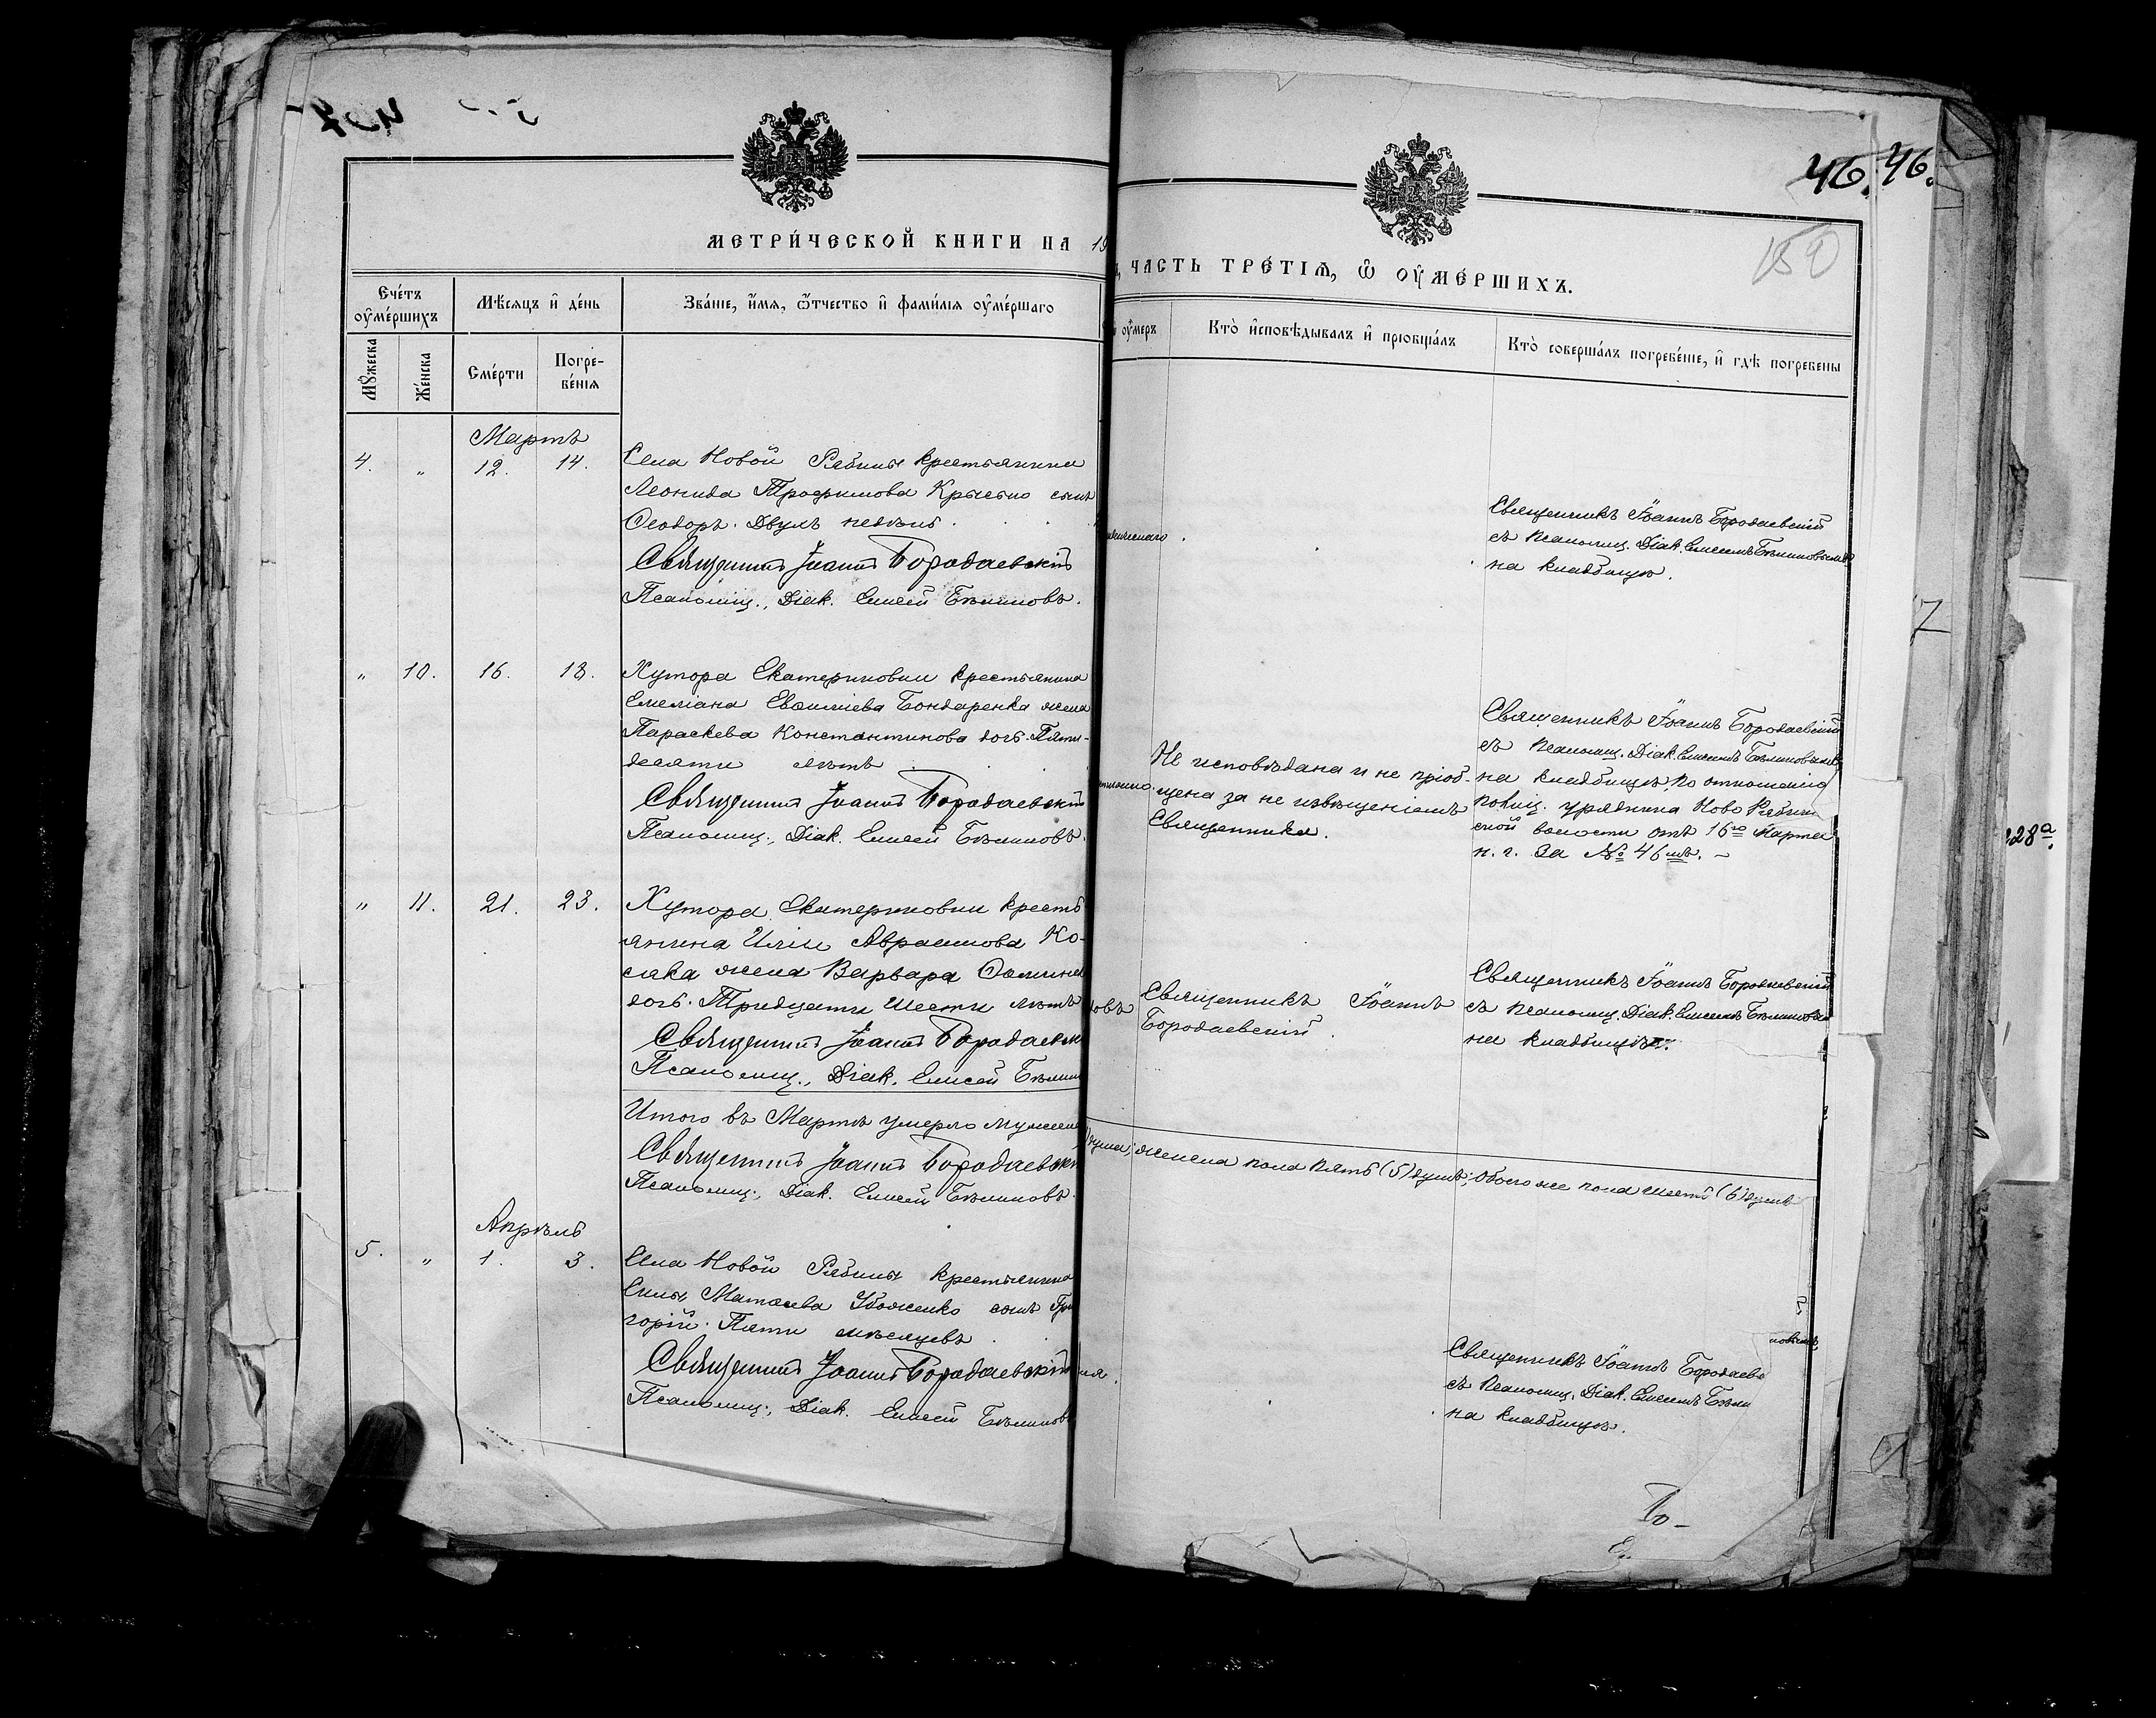 46. 46.
150
МЕТРИ́ЧЕСКОЙ КНИГИ НА 19
ЧАСТЬ ТРЕ́ТІѦ, Ѡ ОУМЕ́РШИХЪ.
Сче́тъ оуме́ршихъ
Мѣсяцъ и де́нь
Зва́ніе, и́мя, ѻтчество и фами́лія оуме́ршаго
оумеръ
Кто̀ исповѣ́дывалъ и пріобща́лъ
Кто̀ соверша́лъ погребе́ніе, и гдѣ погребены
Мꙋжеска
Же́нска
Сме́рти
Погре-
бе́нія
Мартъ
4. „ 12. 14.
Села Новой Рябины крестьянина
Леонида Трофимова сынъ
Ѳеодоръ. Двухъ недѣль.
Священникъ Іоаннъ Бородаевскій
Псаломщ., Діак. Елисей Бѣлиновъ.
Священникъ Іоаннъ Бородаевскій
съ псаломщ. Діак. Елисеемъ Бѣлиновымъ
на кладбищѣ.
„ 10. 16. 18.
Хутора Екатериновки крестьянина
Емеліана Бондаренка жена
Параскева Константинова дочь. Пяти-
десяти лѣтъ
Священникъ Іоаннъ Бородаевскій
Псаломщ., Діак. Елисей Бѣлиновъ.
Не исповѣдана и не пріоб-
щена за не извѣщеніемъ
Священника.
Священникъ Іоаннъ Бородаевскій
съ псаломщ. Діак. Елисеемъ Бѣлиновымъ
на кладбищѣ по отношенію
полиц. урядника Ново Рябин
ской волости отъ 16го Марта
н. г. за № 46мъ. –
„ 11. 21. 23.
Хутора Екатериновки кресть
янина Иліи Авраамова Ко-
слка жена Варвара Ѳомина
дочь. Тридцати шести лѣтъ
Священникъ Іоаннъ Бородаевск
Псаломщ., Діак. Елисей Бѣлин
Священникъ Іоаннъ
Бородаевскій.
Священникъ Іоаннъ Бородаевскій
съ псаломщ. Діак. Елисеемъ Бѣлиновым
на кладбищѣ.
Итого въ Мартѣ умерло мужеска
душа; женска пола пять (5) душъ; обоего же пола шесть (6) душъ
Священникъ Іоаннъ Бородаевскі
Псаломщ., Діак. Елисей Бѣлиновъ.
Апрѣль
5. „ 1. 3.
Села Новой Рябины крестьянина
Силы Матѳеева Убоженко сынъ Гри
горій. Пяти мѣсяцевъ
Священникъ Іоаннъ Бородаевскій
Псаломщ., Діак. Елисей Бѣлиновъ
Священникъ Іоаннъ Бородаевс
съ псаломщ. Діак. Елисеемъ Бѣли
на кладбищѣ.
новымъ
Бо-
228а.